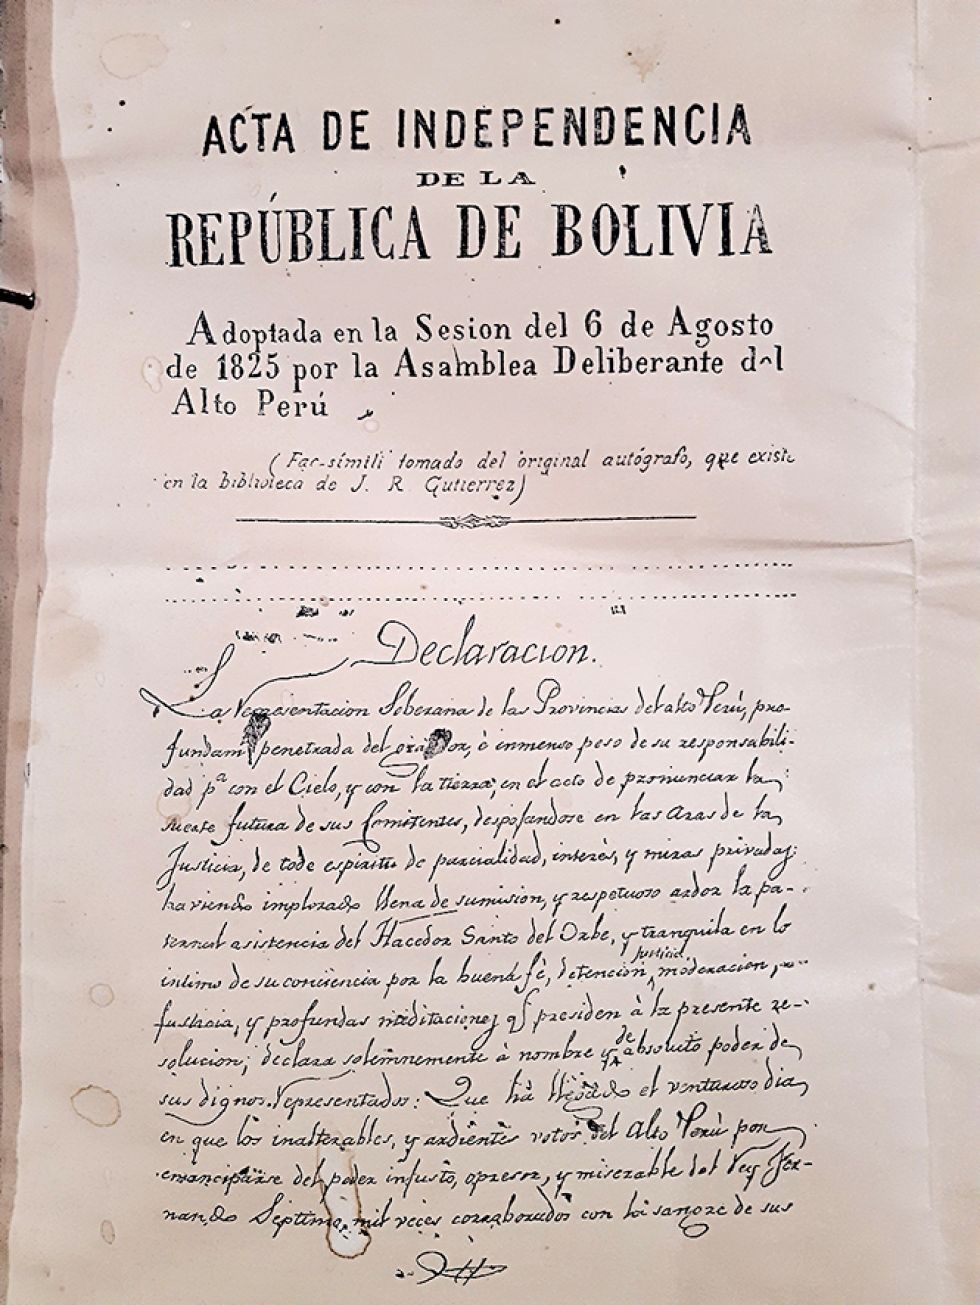 ACTA DE INDEPENDENCIA
DE LA
REPÚBLICA DE BOLIVIA
Adoptada en la Sesion del 6 de Agosto
de 1825 por la Asamblea Deliberante del
Alto Perú
(Fac-símili tomado del original autógrafo, que existe
en la biblioteca de J. R. Gutierrez)
Declaracion.
La representacion Soberana de las Provincias del alto Perú, pro-
fundam penetrada del grandor, è inmenso peso de su responsabili-
dad pª con el Cielo, y con la tierra, en el acto de pronunciar la
suerte futura de sus Comitentes, despojandose en las Aras de la
Justicia, de todo espiritu de parcialidad, interès, y miras privadas;
haviendo implorado llena de sumision, y respetuoso ardor la pa-
ternal asistencia del Hacedor Santo del Orbe, y tranquila en lo
intimo de su conciencia por la buena fè, detencion, justicia, moderacion,
y profundas meditaciones q presiden à la presente re-
solucion; declara solemnemente à nombre y de absoluto poder de
sus dignos representados: Que ha llegado el venturoso dia
en que los inalterables, y ardientes votos del Alto Perù por
emanciparse del poder injusto, opresor, y miserable del Rey Fer-
nando Septimo, mil veces corroborados con la sangre de sus